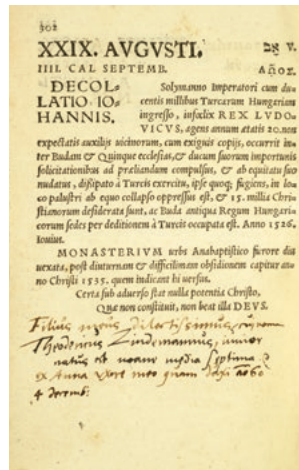 302
XXIX. AVGVSTI. אב V.
IIII. CAL SEPTEMB.
DECOL-
LATIO IO-
HANNIS.
Solymanno Imperatori cum du-
centis millibus Turcarum Hungariam
ingresso, infœlix REX LVDO-
VICVS, agens annum ætatis 20. non
expectatis auxilijs uicinorum, cum exiguis copijs, occurrit in-
ter Budam & Quinque ecclesias, & ducum suorum importunis
solicitationibus ad præliandum compulsus, & ab equitatu suo
nudatus, dissipato à Turcis exercitu, ipse quoq; fugiens, in lo-
co palustri ab equo collapso oppressus est, & 15. millia Chri-
stianorum desiderata sunt, ac Buda antiqua Regum Hungari-
corum sedes per deditionem à Turcis occupata est. Anno 1526.
Iouius.
MONASTERIVM urbs Anabaptistico furore diu
uexata, post diuturnam & difficilimam obsidionem capitur an-
no Christi 1535. quem indicant hi uersus.
Certa sub aduerso stat nulla potentia Christo,
Quæ non constituit, non beat illa DEVS.
Filius meus dilectissimus
Theodericus Lindemannus, iunior
natus est
ex Anna